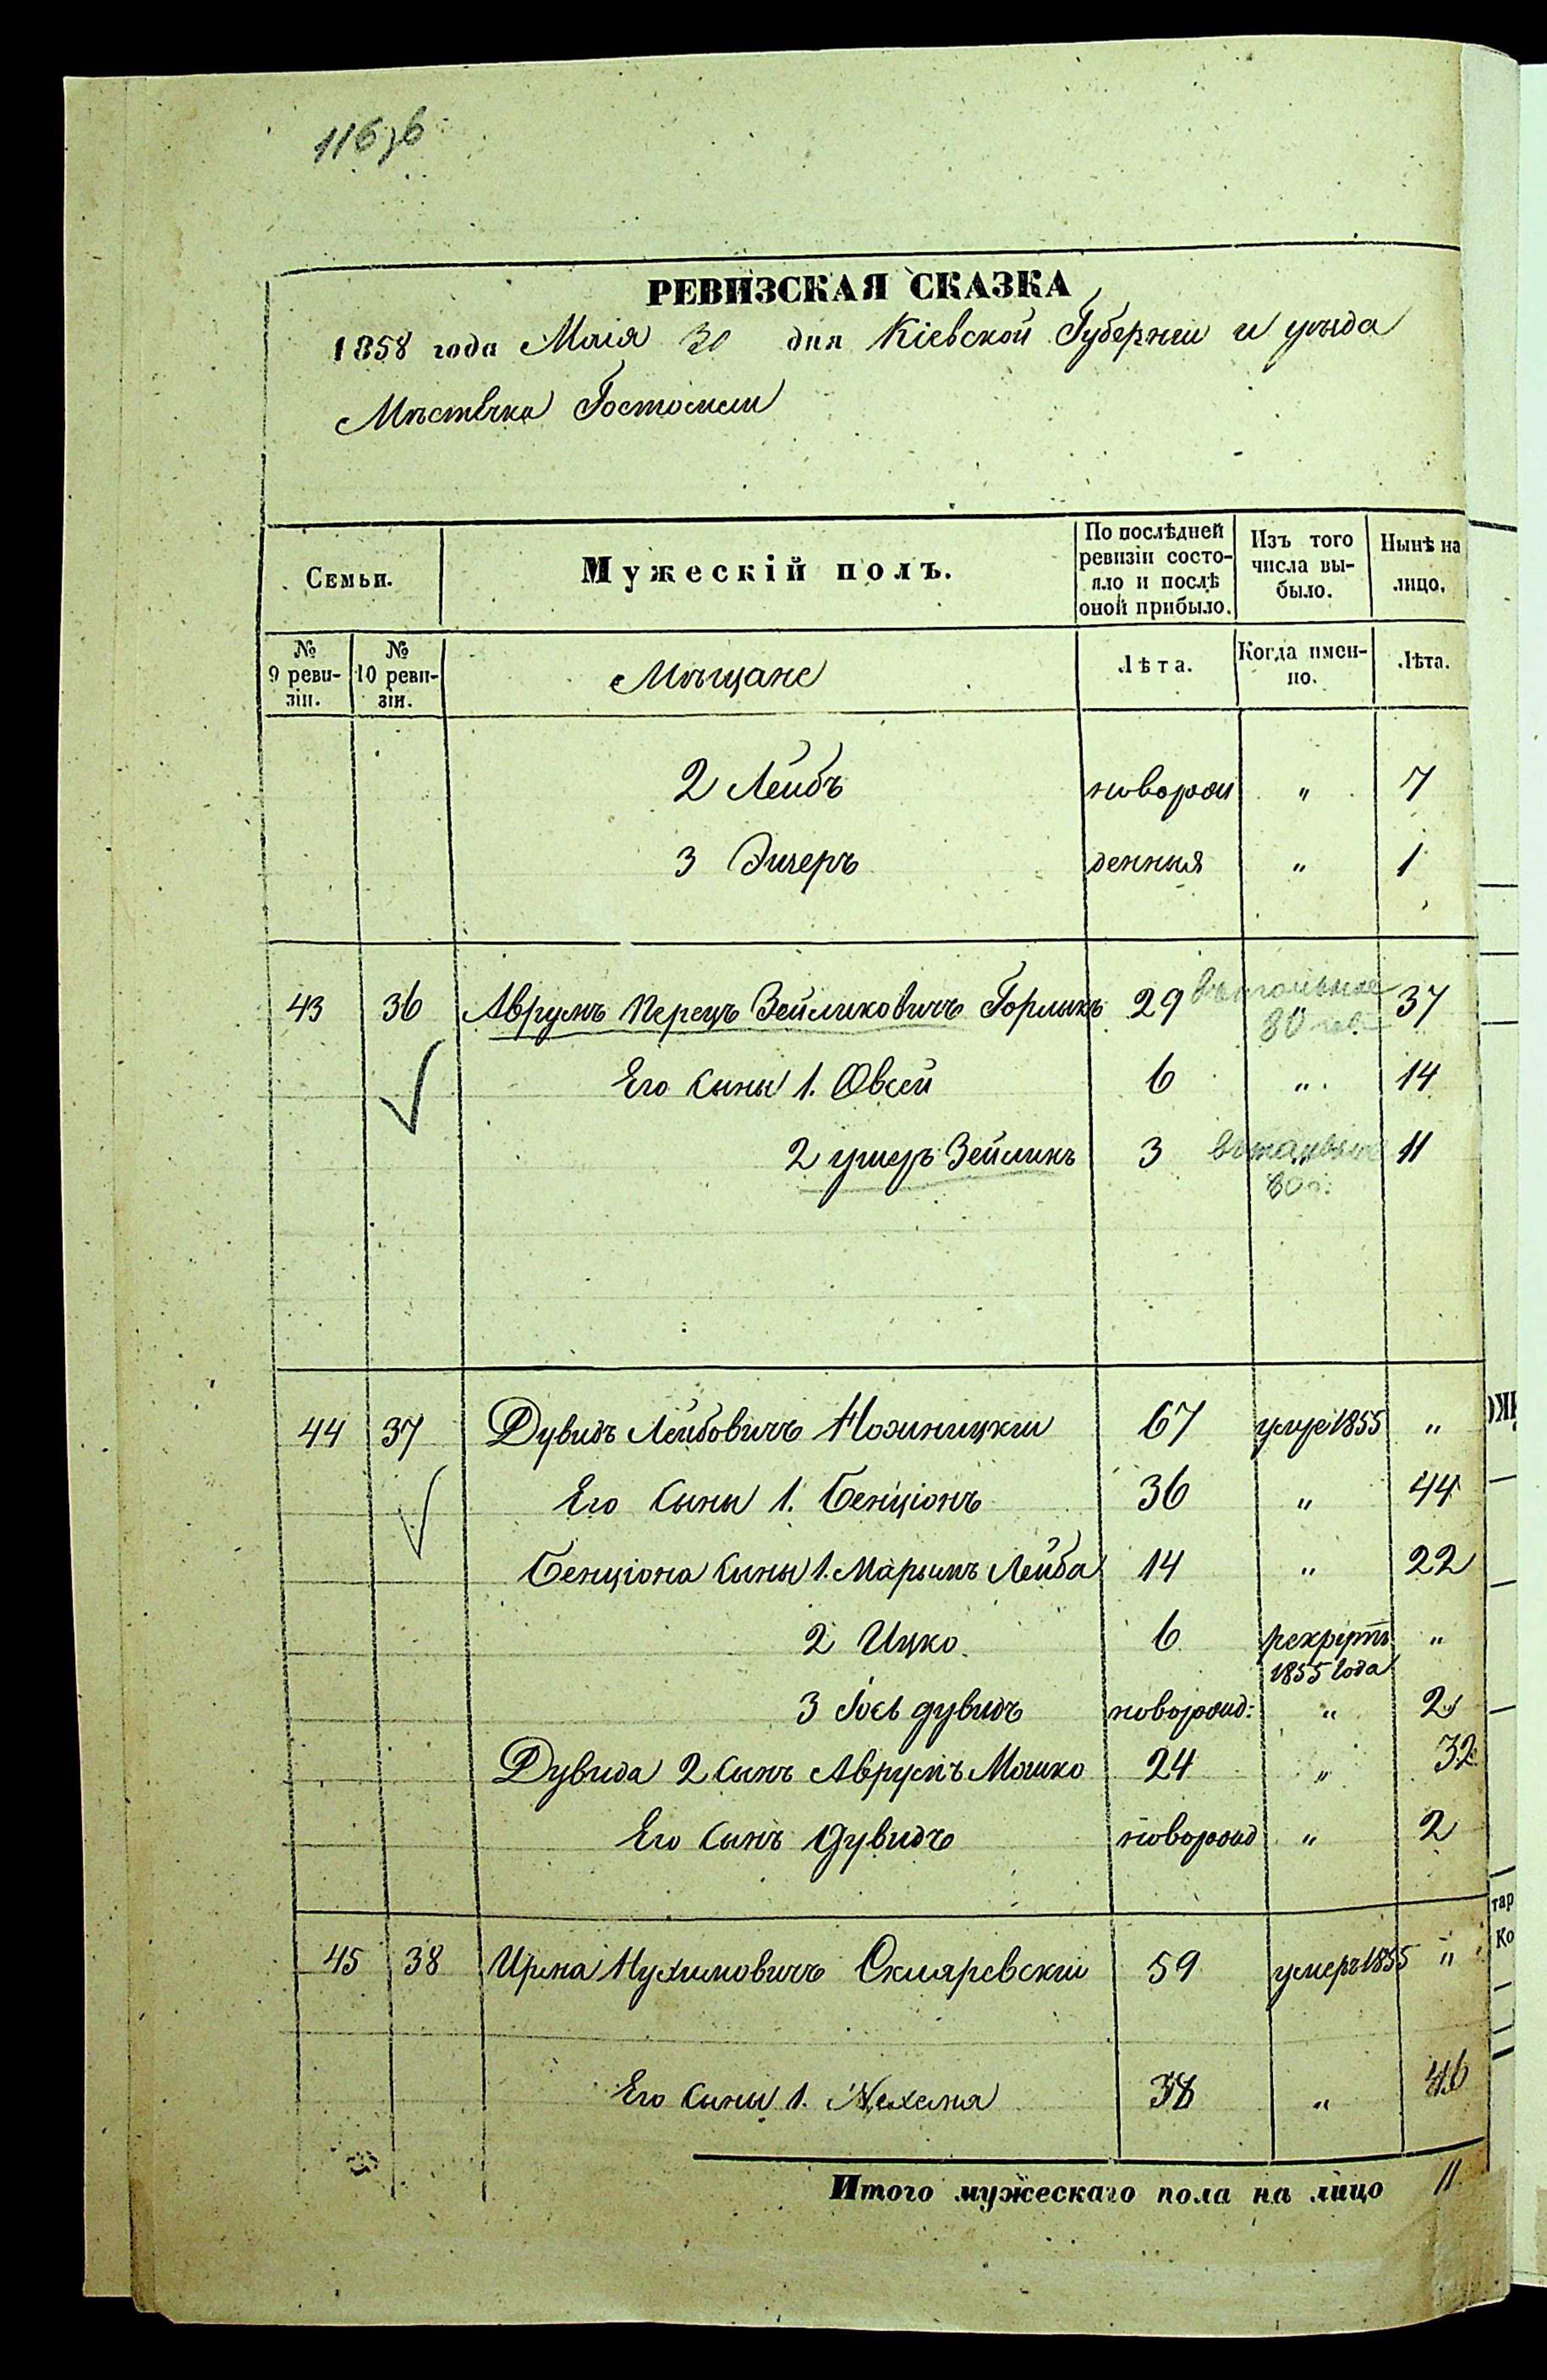 116 зв
РЕВИЗСКАЯ СКАЗКА
1858 года Маія 30 дня Кіевской Губерніи и уезда
Мѣстечка Гостомеля
Семьи. Мужескій полъ. По послѣдней ревизіи состо-яло и послѣ оной прибыло. Изъ того числа вы-было. Нынѣ на лицо.
№ 9 реви-зіи. № 10 реви-зіи. Мѣщане Лѣта. Когда имен-но. Лѣта.
2 Лейбъ новорож " 7
3 Эшеръ денныя " 1
43 36 Аврумъ Перецъ Зейликовичъ Горликъ 29 37
80
Его сыны 1. Овсей 6 " 14
2 ушеръ Зейликъ 3 11
80 г.
44 37 Дувидъ Лейбовичъ Ножницкій 67 умре 1855 "
Его сыны 1. Бенціонъ 36 " 44
Бенціона сыны 1. Марьимъ Лейба 14 " 22
2 Ицко 6 рекрутъ "
1855 года
3 Іось дувидъ новорожд: " 2
Дувида 2 сынъ Аврумъ Мошко 24 " 32
Его сынъ Дувидъ новорожд " 2
45 38 Ирма Нухимовичъ Скляревскій 59 умеръ 1855 "
Его сыны 1. 38 " 46
Итого мужескаго пола на лицо 11